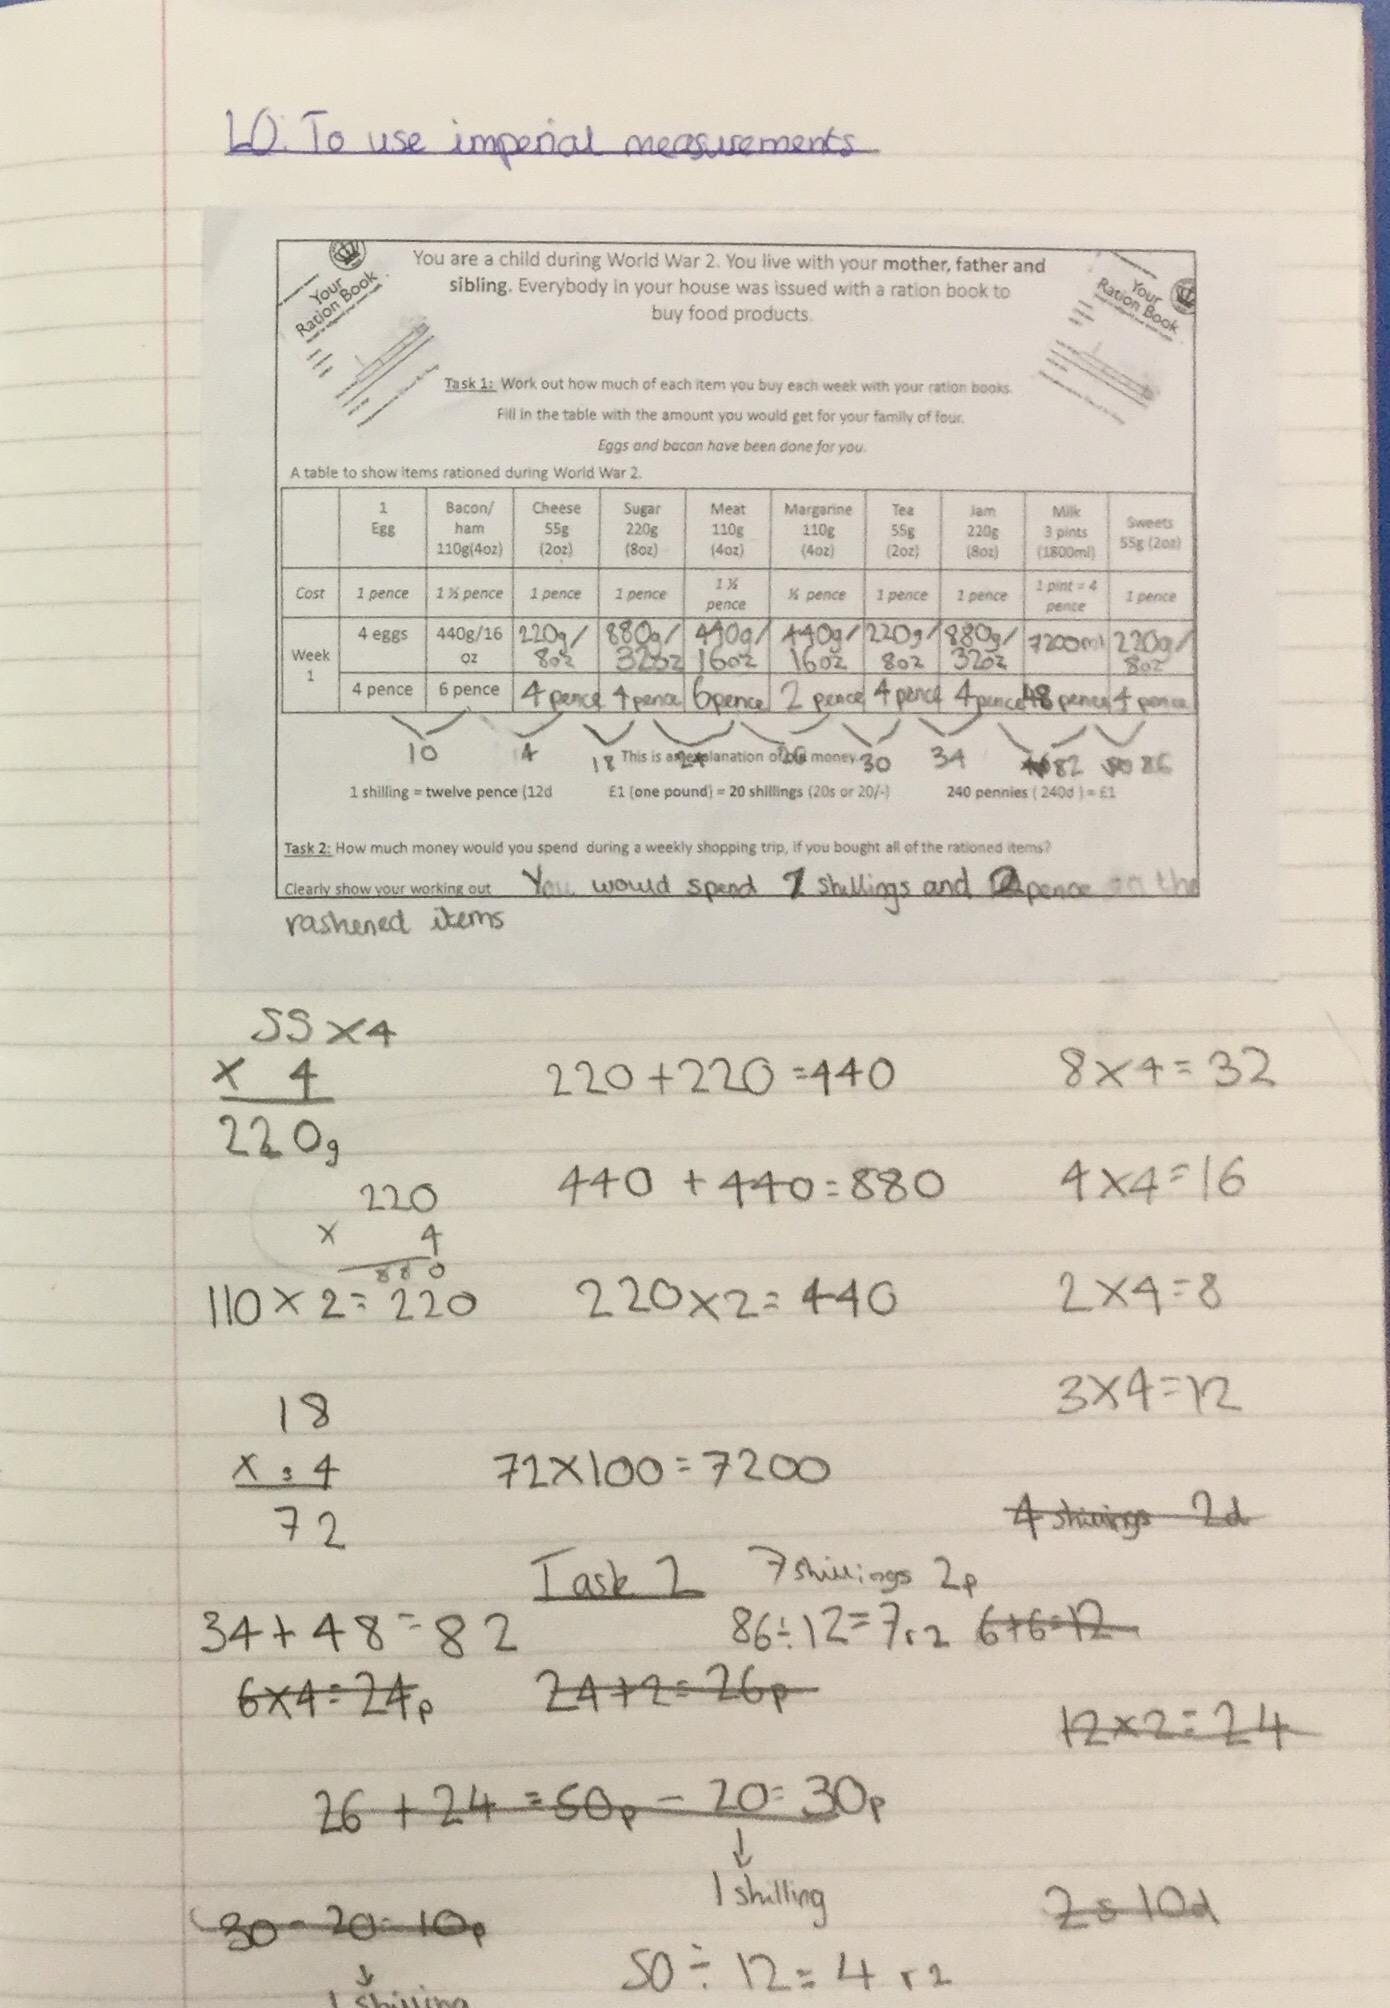 LO: To use imperial measurements
Your
Ration Book
Your
Ration Book
You are a child during World War 2. You live with your mother, father and
sibling. Everybody in your house was issued with a ration book to
buy food products.
Task 1: Work out how much of each item you buy each week with your ration books.
Fill in the table with the amount you would get for your family of four.
Eggs and bacon have been done for you.
A table to show items rationed during World War 2.
1 Egg | Bacon/ ham 110g(4oz) | Cheese 55g (2oz) | Sugar 220g (8oz) | Meat 110g (4oz) | Margarine 110g (4oz) | Tea 55g (2oz) | Jam 220g (8oz) | Milk 3 pints (1800ml) | Sweets 55g (2oz)
Cost | 1 pence | 1 ½ pence | 1 pence | 1 pence | 1 ½ pence | ½ pence | 1 pence | 1 pence | 1 pint = 4 pence | 1 pence
Week 1 | 4 eggs | 440g/16 oz | 220g/ 8oz | 880g/ 32oz | 440g/ 16oz | 440g/ 16oz | 220g/ 8oz | 880g/ 32oz | 7200ml | 220g/ 8oz
4 pence | 6 pence | 4 pence | 4 pence | 6 pence | 2 pence | 4 pence | 4 pence | 48 pence | 4 pence
10 14 18 24 26 30 34 82 86
This is an explanation of old money.
1 shilling = twelve pence (12d £1 (one pound) = 20 shillings (20s or 20/-) 240 pennies ( 240d ) = £1
Task 2: How much money would you spend during a weekly shopping trip, if you bought all of the rationed items?
Clearly show your working out You would spend 7 shillings and 2 pence on the
rashened items
55 x 4
x 4
220g
220 + 220 = 440
8 x 4 = 32
220
x 4
880
440 + 440 = 880
4 x 4 = 16
110 x 2 = 220
220 x 2 = 440
2 x 4 = 8
3 x 4 = 12
18
x 3 4
72
72 x 100 = 7200
4 shillings 2d
Task 2 7 shillings 2p
34 + 48 = 82
86 ÷ 12 = 7 r 2 6+6=12
6x4=24p
24+2=26p
12x2=24
26 + 24 = 50p - 20 = 30p
1 shilling
30 - 20 = 10p
2s 10d
1 shilling
50 ÷ 12 = 4 r 2